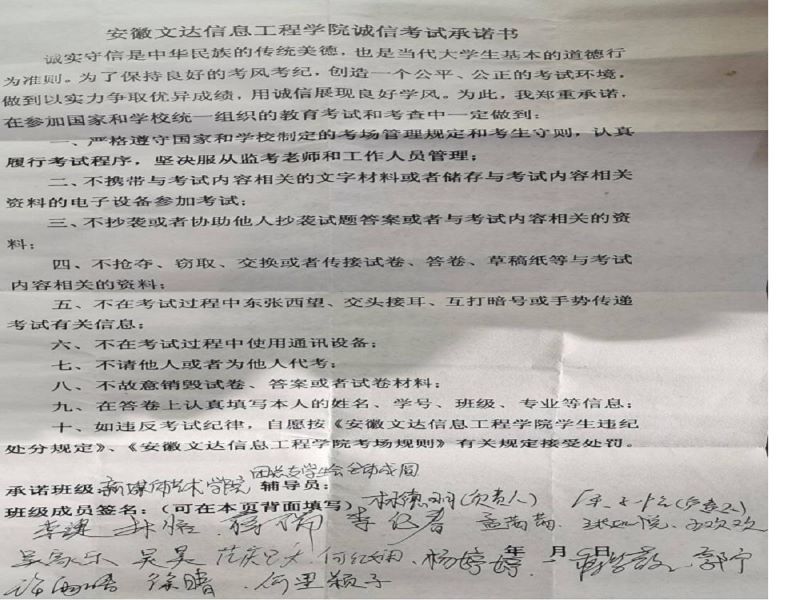 安徽文达信息工程学院诚信考试承诺书
诚实守信是中华民族的传统美德，也是当代大学生基本的道德行
为准则。为了保持良好的考风考纪，创造一个公平、公正的考试环境，
做到以实力争取优异成绩，用诚信展现良好学风。为此，我郑重承诺，
在参加国家和学校统一组织的教育考试和考查中一定做到：
一、严格遵守国家和学校制定的考场管理规定和考生守则，认真
履行考试程序，坚决服从监考老师和工作人员管理；
二、不携带与考试内容相关的文字材料或者储存与考试内容相关
资料的电子设备参加考试；
三、不抄袭或者协助他人抄袭试题答案或者与考试内容相关的资
料；
四、不抢夺、窃取、交换或者传接试卷、答卷、草稿纸等与考试
内容相关的资料；
五、不在考试过程中东张西望、交头接耳、互打暗号或手势传递
考试有关信息；
六、不在考试过程中使用通讯设备；
七、不请他人或者为他人代考；
八、不故意销毁试卷、答案或者试卷材料；
九、在答卷上认真填写本人的姓名、学号、班级、专业等信息；
十、如违反考试纪律，自愿按《安徽文达信息工程学院学生违纪
处分规定》、《安徽文达信息工程学院考场规则》有关规定接受处罚。
团总支学生会全体成员
承诺班级：新媒体艺术学院 辅导员：
班级成员签名：（可在本页背面填写） （负责人）
年 月 日
吴家乐 吴昊 杨婷婷 郭宁
徐晴